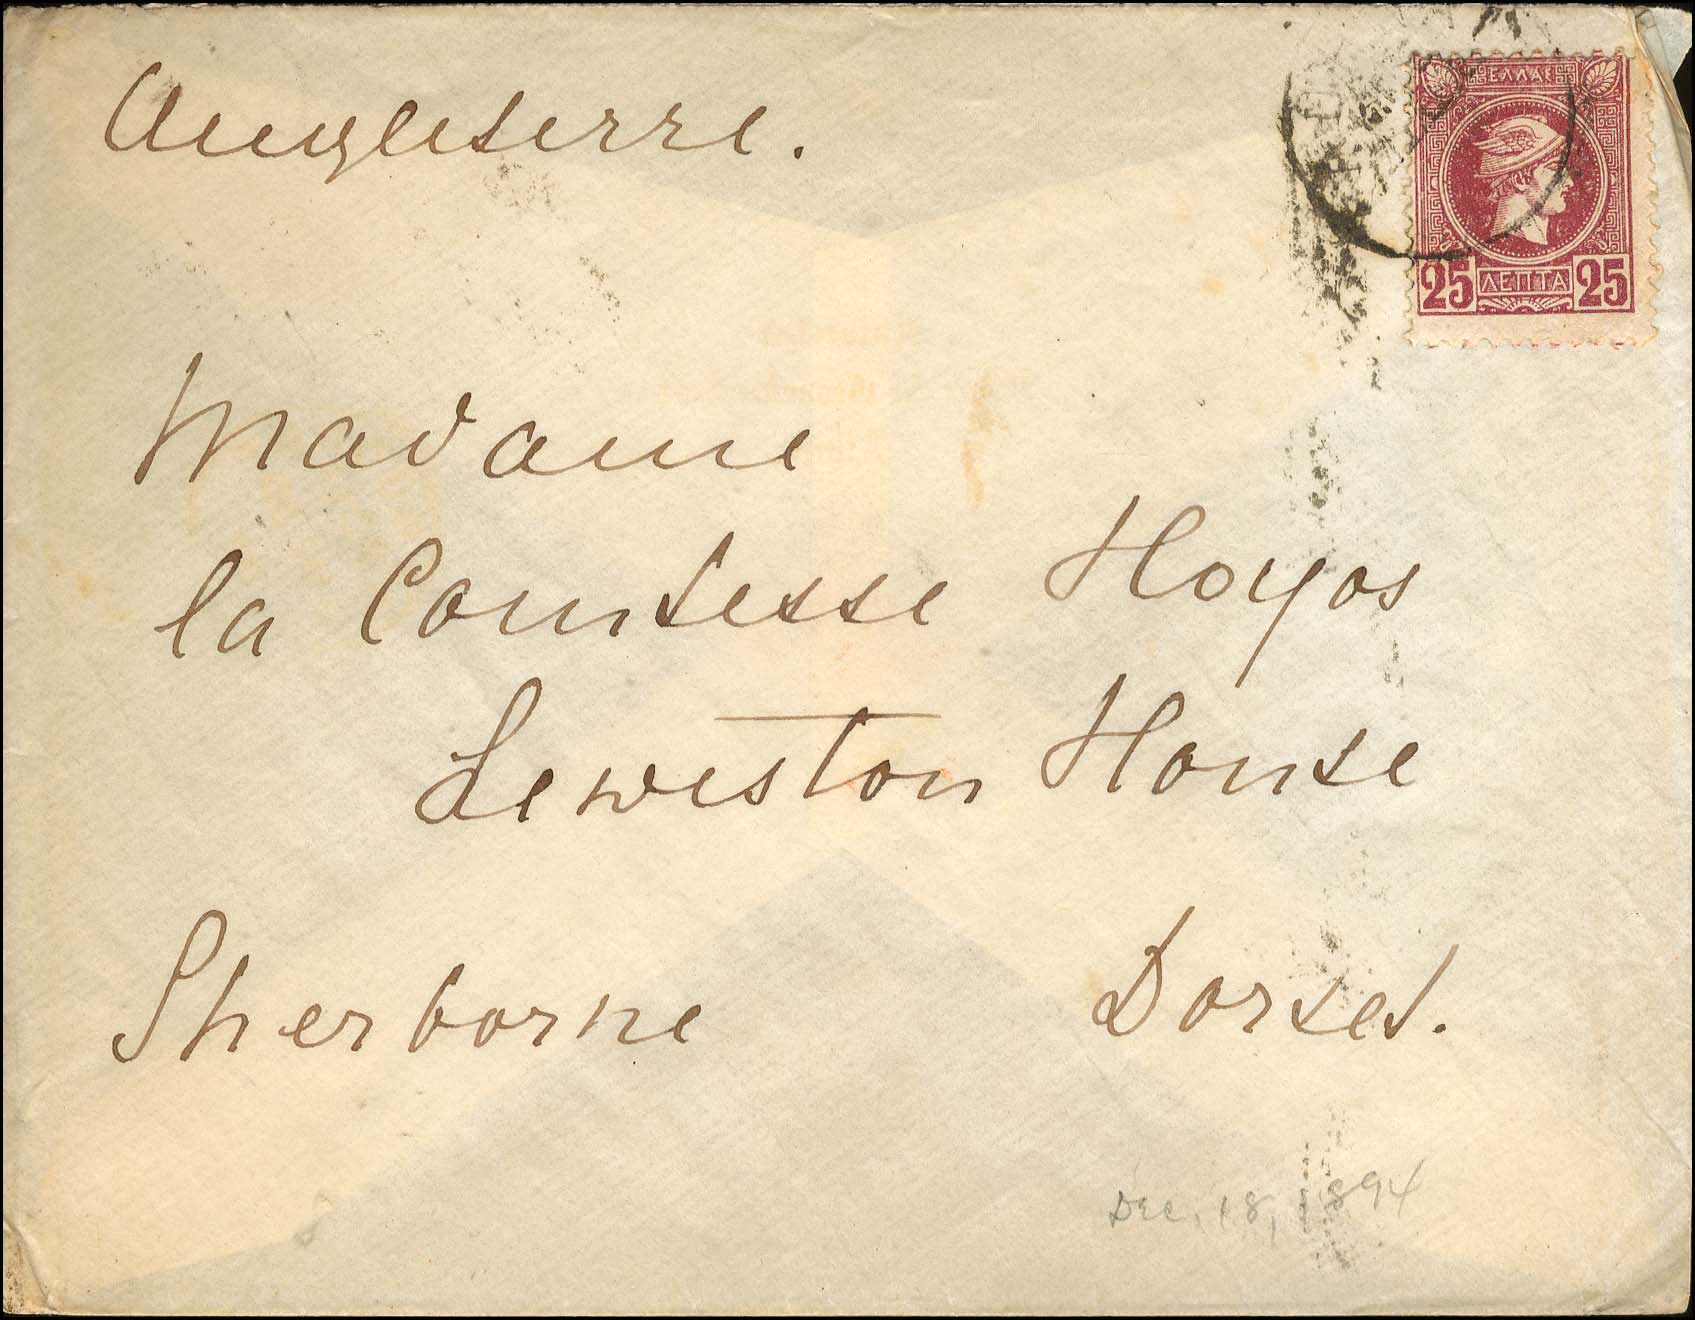 Angleterre.
ΕΛΛΑΣ
25 ΛΕΠΤΑ 25
Madame
la Comtesse Hoyos
Lewiston House
Sherborne Dorset.
Dec. 18, 1894